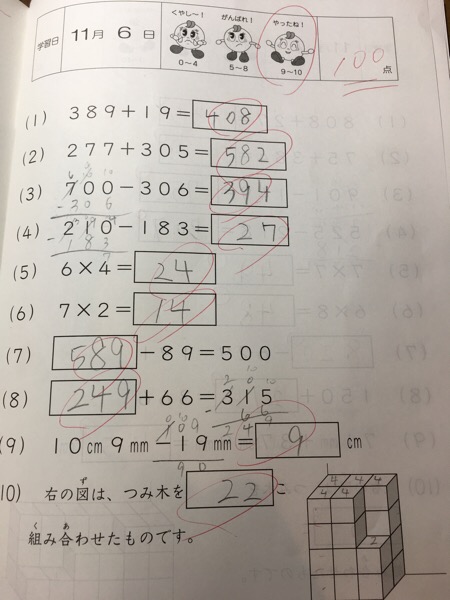 学習日 11月 6 日 くやし〜! がんばれ! やったね! 100点
0〜4 5〜8 9〜10
(1) 389+19=408
(2) 277+305=582
(3) 700−306=394
(4) 210−183=27
(5) 6×4=24
(6) 7×2=14
(7) 589−89=500
(8) 249+66=315
(9) 10cm 9mm−19mm=9cm
10) 右の図は、つみ木を 22 こ
組み合わせたものです。